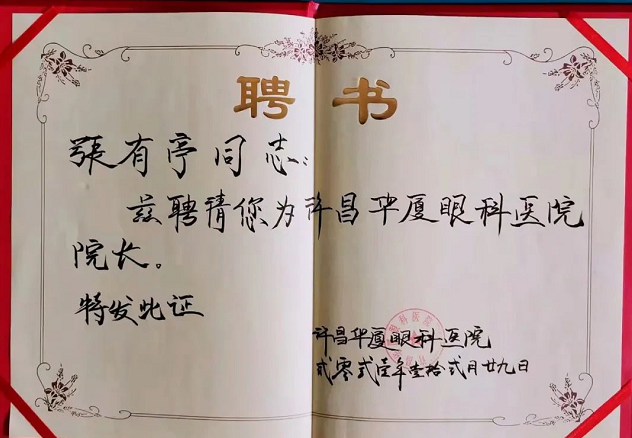 聘书
張有亭同志：
兹聘请您为许昌华厦眼科医院
院长。
特发此证
许昌华厦眼科医院
贰零贰壹年壹拾贰月廿九日